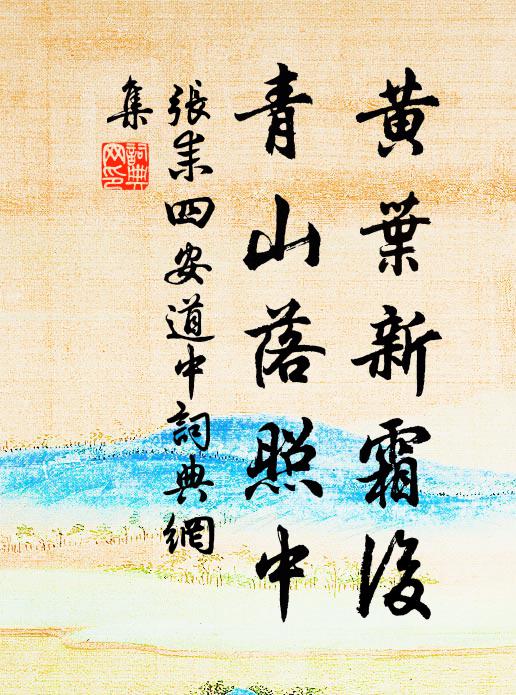 黄葉新霜後
青山落照中
張耒四安道中詞典網
集
詞典
网印